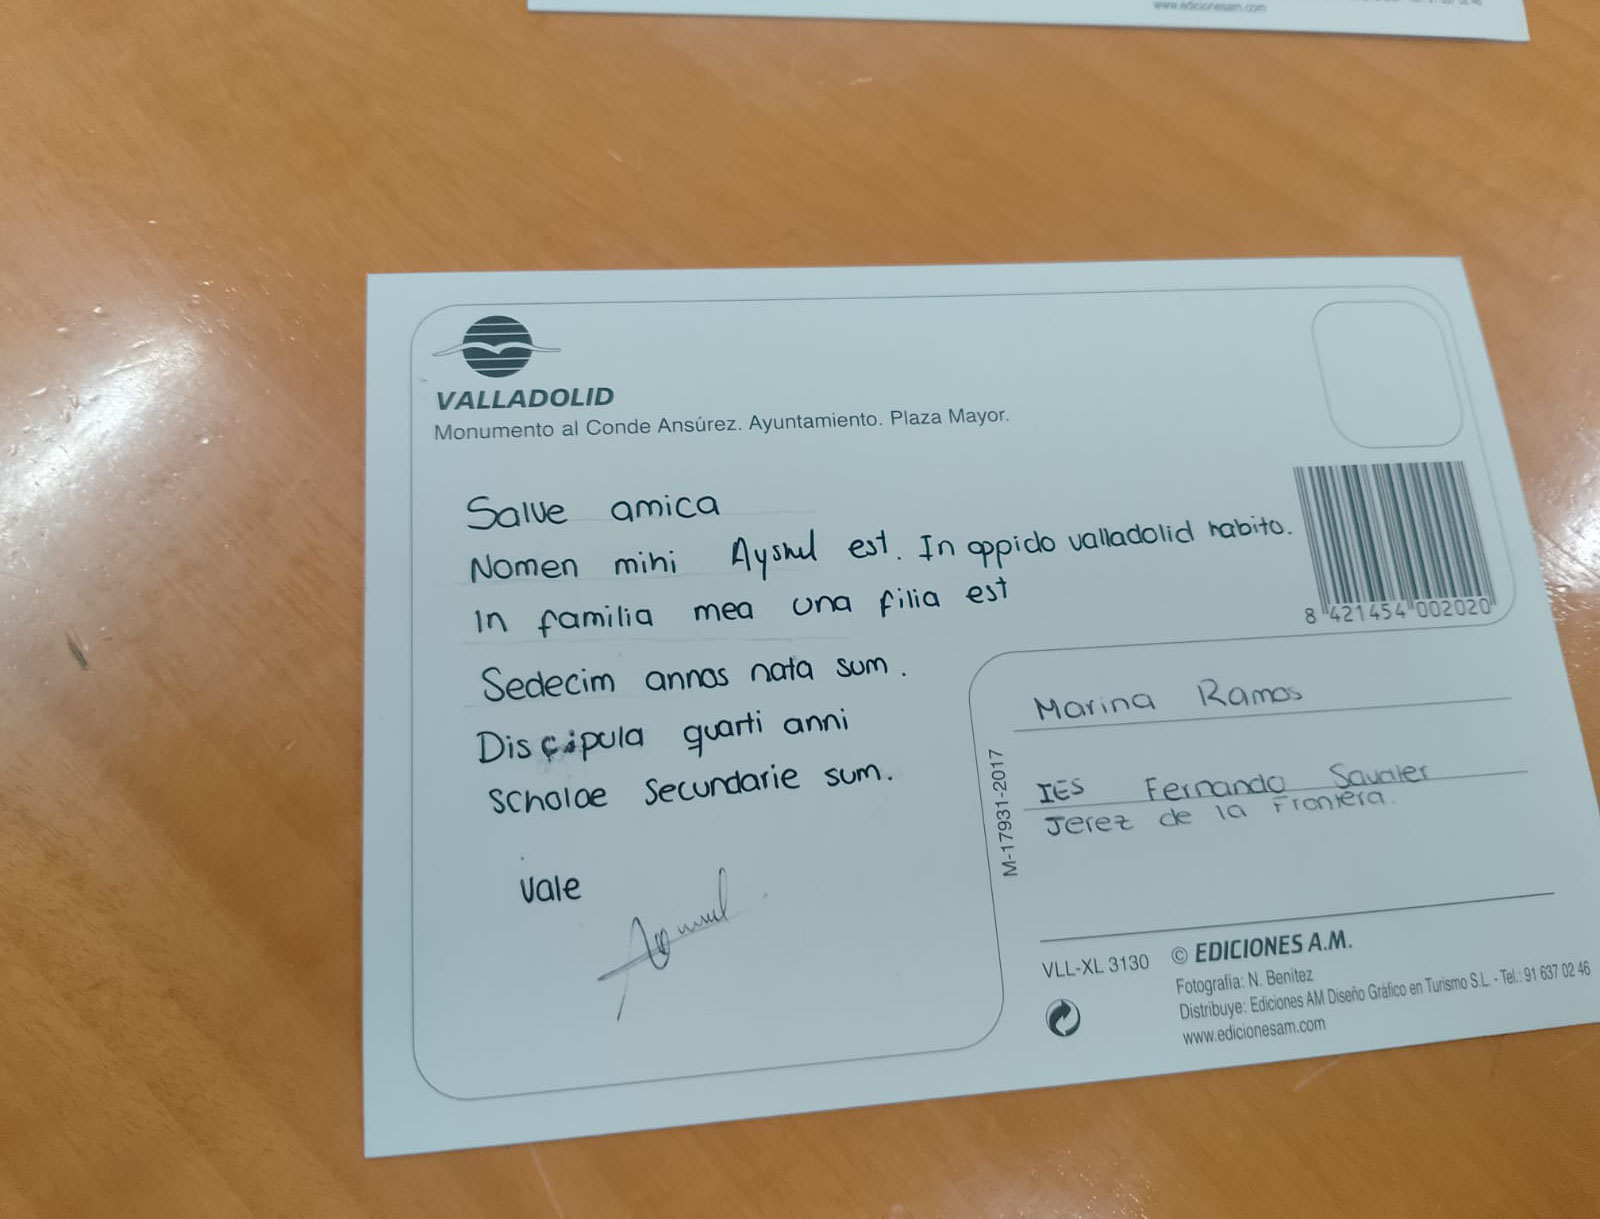 www.edicionesam.com
VALLADOLID
Monumento al Conde Ansúrez. Ayuntamiento. Plaza Mayor.
Salve amica
Nomen mihi Ayshul est. In oppido valladolid habito.
In familia mea una filia est
Sedecim annos nata sum.
Discipula quarti anni
scholae Secundarie sum.
Vale
8 421454 002020
Marina Ramos
IES Fernando Savater
Jerez de la Frontera.
M-17931-2017
VLL-XL 3130 © EDICIONES A.M.
Fotografía: N. Benítez
Distribuye: Ediciones AM Diseño Gráfico en Turismo S.L. - Tel.: 91 637 02 46
www.edicionesam.com